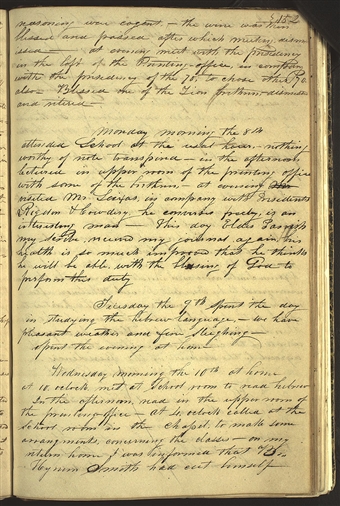 152
reasoning was cogent – the wine was then
blessed and passed after which meeting dismissed
– at evening met with the presidency
in the loft of the Printing-office, in company
with the presidency of the 70, to chose other 70,
also – Blessed one of the Zion brethren – dismissed
and retired –
Monday morning the 8th
attended School at the usual hour. nothing
worthy of note transpired – in the afternoon
lectured in upper room of the printing office
with some of the brethren, – at evening
visited Mr Seixas, in company with Presidents
Rigdon & Cowdery, he converses freely, is an
interesting man – This day Elder Parrish
my Scribe, received my journal again, his
health is so much improved that he thinks
he will be able, with the blessing of God to
perform this duty
Tuesday the 9th spent the day
in studying the hebrew language, – we have
pleasant weather and fine sleighing –
Spent the evening at home
Wednesday morning the 10th at home
at 10, oclock met at School room to read hebrew
In the afternoon, read in the upper room of
the printing-office – At 4, oclock called at the
School room in the chapel, to make some
arrangments, concerning the classes – on my
return home I was informed that Br.
Hyrum Smith had cut himself